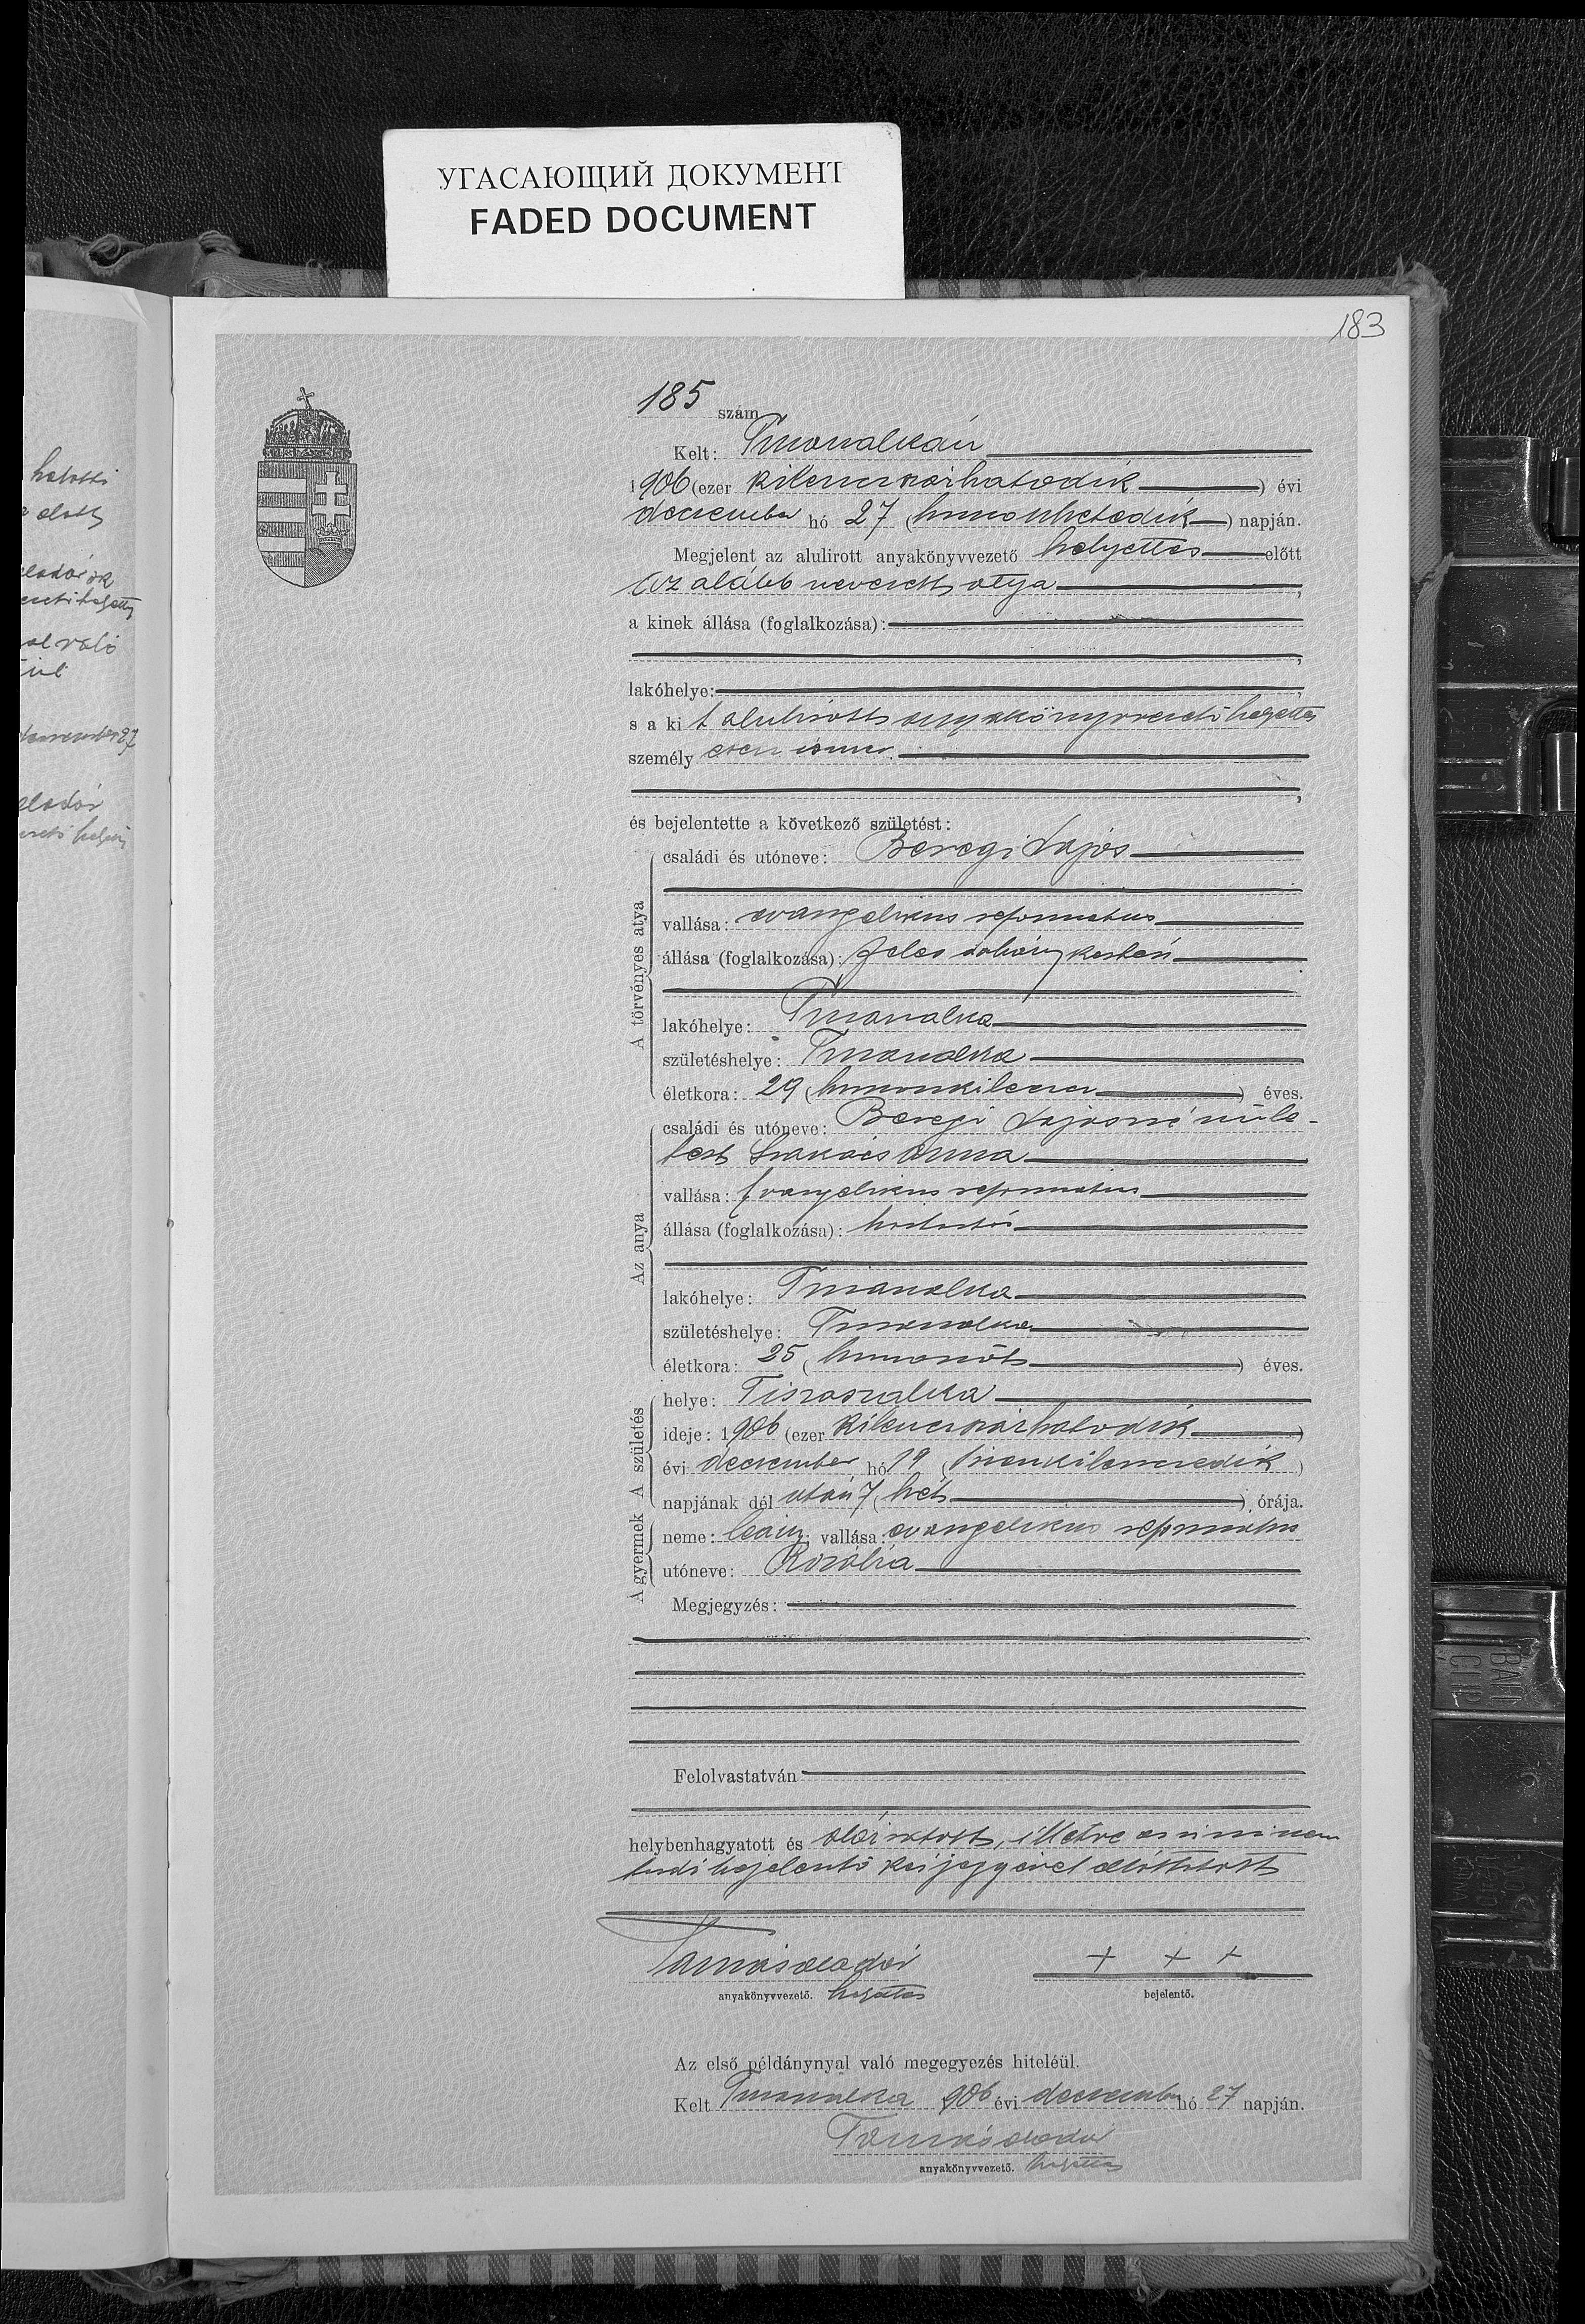 УГАСАЮЩИЙ ДОКУМЕНТ
FADED DOCUMENT
183
185 szám
Kelt: Tiszaszalkán
1906 (ezer kilenczszázhatodik) évi
deczember hó 27 (huszonhetedik) napján.
Megjelent az alulirott anyakönyvvezető helyettes előtt
az alább nevezett atya,
a kinek állása (foglalkozása):
lakóhelye:
s a kit alulirott anyakönyvvezető helyettes
személyesen ismer.
és bejelentette a következő születést:
A törvényes atya
családi és utóneve: Beregi Lajos
vallása: evangelikus reformatus
állása (foglalkozása): feles dohánykertész
lakóhelye: Tiszaszalka
születéshelye: Tiszaszalka
életkora: 29 (huszonkilencz) éves.
Az anya
családi és utóneve: Beregi Lajosné szüle-
tett Szakács Anna
vallása: evangelikus reformatus
állása (foglalkozása): háztartás
lakóhelye: Tiszaszalka
születéshelye: Tiszaszalka
életkora: 25 (huszonöt) éves.
A születés
helye: Tiszaszalka
ideje: 1906 (ezer kilenczszázhatodik)
évi deczember hó 19 (tizenkilenczedik)
napjának dél után 7 (hét) órája.
A gyermek
neme: leány; vallása: evangelikus reformatus
utóneve: Rozália
Megjegyzés:
Felolvastatván
helybenhagyatott és aláiratott, illetve az irni nem
tudó bejelentő kézjegyével elláttatott
Tamás Aladár
+ + +
anyakönyvvezető. helyettes
bejelentő.
Az első példánynyal való megegyezés hiteléül.
Kelt Tiszaszalka 906 évi deczember hó 27 napján.
Tamás Aladár
anyakönyvvezető. helyettes